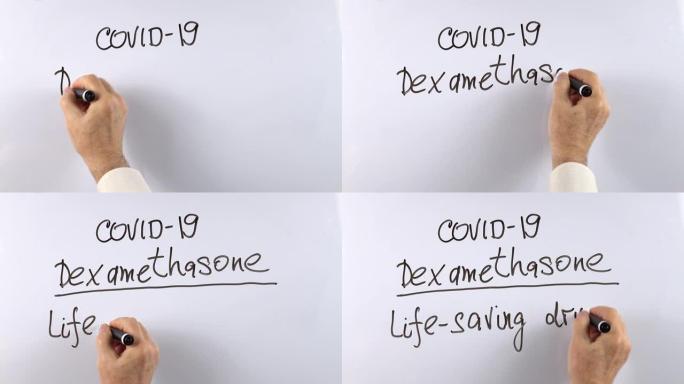 COVID-19
D
COVID-19
Dexamethaso
COVID-19
Dexamethasone
Life
COVID-19
Dexamethasone
Life-saving dru